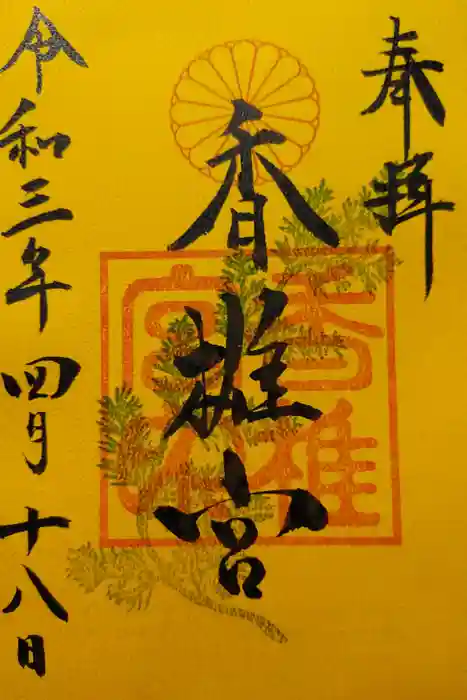 奉拝
香椎宮
令和三年四月十八日
香椎
宮